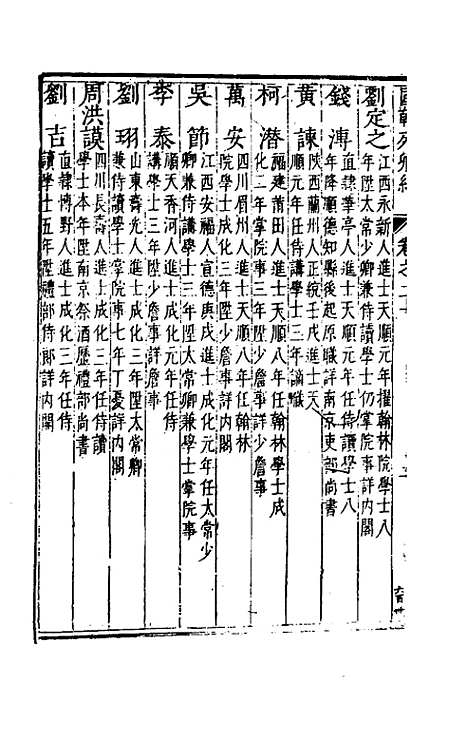 國朝列卿紀
卷之二十
劉定之
江西永新人進士天順元年擢翰林院學士八
年陞太常少卿兼侍讀學士仍掌院事詳內閣
錢溥
直隸華亭人進士天順元年任侍讀學士八
年降順德知縣後起原職詳南京吏部尚書
黃諫
陝西蘭州人正統壬戌進士天
順元年任侍講學士三年謫職
柯潛
福建莆田人進士天順八年任翰林學士成
化二年掌院事三年陞少詹事詳少詹事
萬安
四川眉州人進士天順八年任翰林
院學士成化三年陞少詹事詳內閣
吳節
江西安福人宣德庚戌進士成化元年任太常少
卿兼侍講學士三年陞太常卿兼學士掌院事
李泰
順天香河人進士成化元年任侍
講學士三年陞少詹事詳詹事
劉珝
山東壽光人進士成化三年陞太常卿
兼侍讀學士掌院事七年丁憂詳內閣
周洪謨
四川長壽人進士成化三年任侍讀
學士本年陞南京祭酒歷禮部尚書
劉吉
直隸博野人進士成化三年任侍
讀學士五年陞禮部侍郎詳內閣